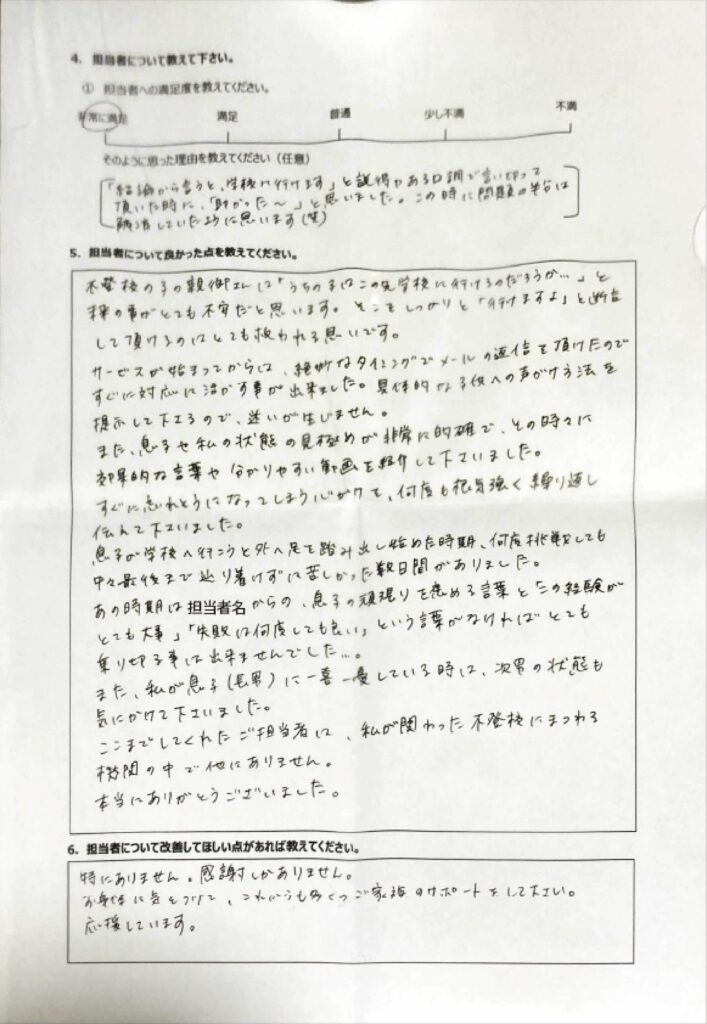 4. 担当者について教えて下さい。
① 担当者への満足度を教えてください。
非常に満足 満足 普通 少し不満 不満
そのように思った理由を教えてください（任意）
「結論から言うと、学校に行けます」と説得力ある口調で言い切って
頂いた時に、「助かった〜」と思いました。この時に問題の半分は
解消していたように思います(笑)
5. 担当者について良かった点を教えてください。
不登校の子の親御さんは「うちの子はこの先学校に行けるのだろうか…」と
様の事がとても不安だと思います。そこをしっかりと「行けますよ」と断言
して頂けるのはとても救われる思いです。
サービスが始まってからは、絶妙なタイミングでメールの返信を頂けたので
すぐに対応に活かす事が出来ました。具体的な子供への声がけ方法を
提示して下さるので、迷いが生じません。
また、息子や私の状態の見極めが非常に的確で、その時々に
効果的な言葉や分かりやすい動画を紹介して下さいました。
すぐに忘れそうになってしまう心がけを、何度も根気強く繰り返し
伝えて下さいました。
息子が学校へ行こうと外へ足を踏み出し始めた時期、何度挑戦しても
中々最後まで辿り着けずに苦しかった数日間がありました。
あの時期は担当者名からの、息子の頑張りを認める言葉と「この経験が
とても大事」「失敗は何度しても良い」という言葉がなければとても
乗り切る事は出来ませんでした…。
また、私が息子(長男)に一喜一憂している時は、次男の状態も
気にかけて下さいました。
ここまでしてくれたご担当者は、私が関わった不登校にまつわる
機関の中で他にありません。
本当にありがとうございました。
6. 担当者について改善してほしい点があれば教えてください。
特にありません。感謝しかありません。
お身体に気をつけて、これからも多くのご家族のサポートをして下さい。
応援しています。